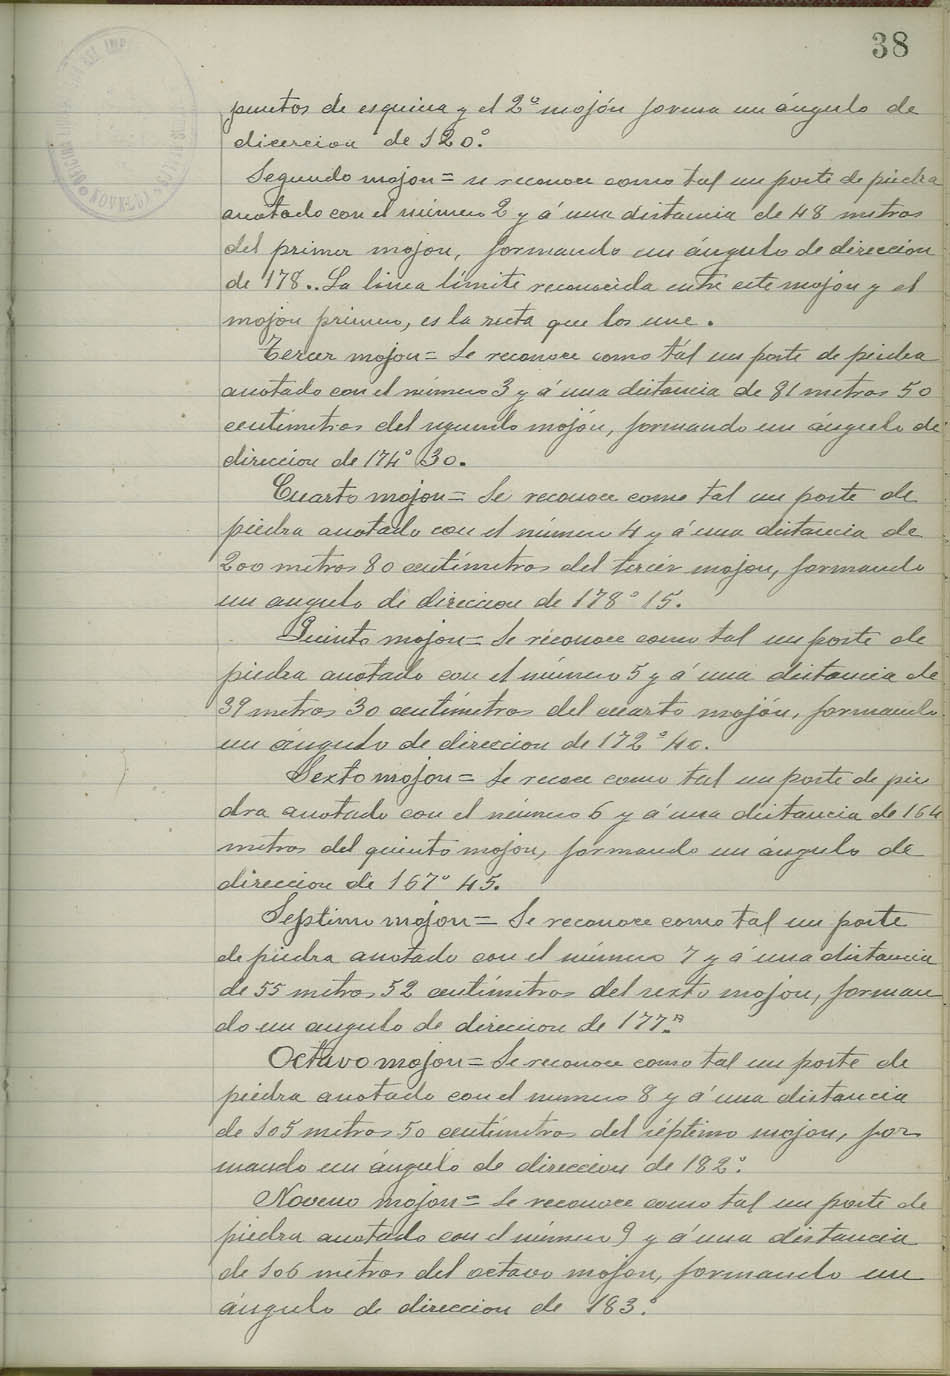 38
puntos de esquina y el 2º mojón forma un ángulo de
dicercion de 120º.
Segundo mojon = se reconoce como tal un poste de piedra
anotado con el número 2 y á una distancia de 48 metros
del primer mojon, formando un ángulo de dirección
de 178.. La linea límite reconocida entre este mojon y el
mojon primero, es la recta que los une.
Tercer mojon = Se reconoce como tál un poste de piedra
anotado con el número 3 y á una distancia de 81 metros 50
centímetros del segundo mojón, formando un ángulo de
direccion de 174º 30.
Cuarto mojon = Se reconoce como tal un poste de
piedra anotado con el número 4 y á una distancia de
200 metros 80 centímetros del tercér mojon, formando
un angulo de direccion de 178º 15.
Quinto mojon = Se réconoce como tal un poste de
piedra anotado con el número 5 y á una distancia de
39 metros 30 centímetros del cuarto mojón, formando
un ángulo de direccion de 172º 40.
Sexto mojon = Se recoce como tal un poste de pie
dra anotado con el número 6 y á una distancia de 164
metros del quinto mojon, formando un ángulo de
direccion de 167º 45.
Septimo mojon = Se reconoce como tal un poste
de piedra anotado con el número 7 y á una distancia
de 55 metros 52 centímetros del sexto mojon, forman
do un angulo de direccion de 177.º
Octavo mojon = Se reconoce como tal un poste de
piedra anotado con el numero 8 y á una distancia
de 105 metros 50 centímetros del séptimo mojon, for
mando un ángulo de direccion de 182º.
Noveno mojon = Se reconoce como tal un poste de
piedra anotado con el número 9 y á una distancia
de 106 metros del octavo mojon, formando un
ángulo de direccion de 183.º